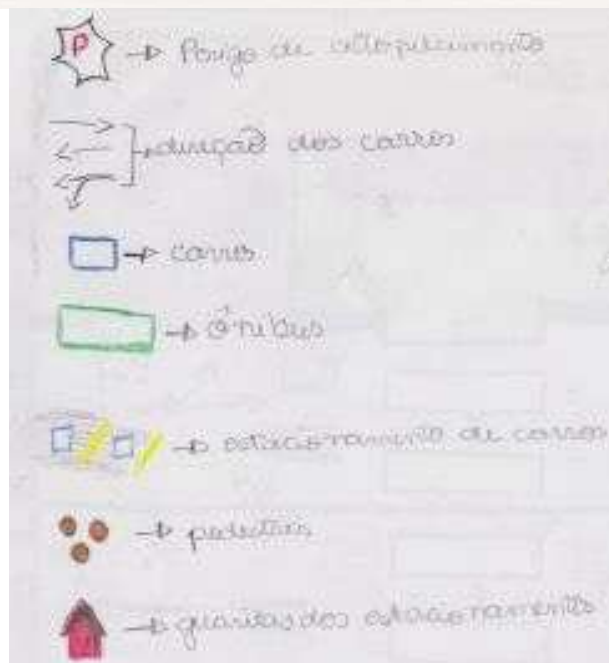 P
Perigo de atropelamento
direção dos carros
carros
ônibus
estacionamento de carros
pedestres
guaritas dos estacionamento